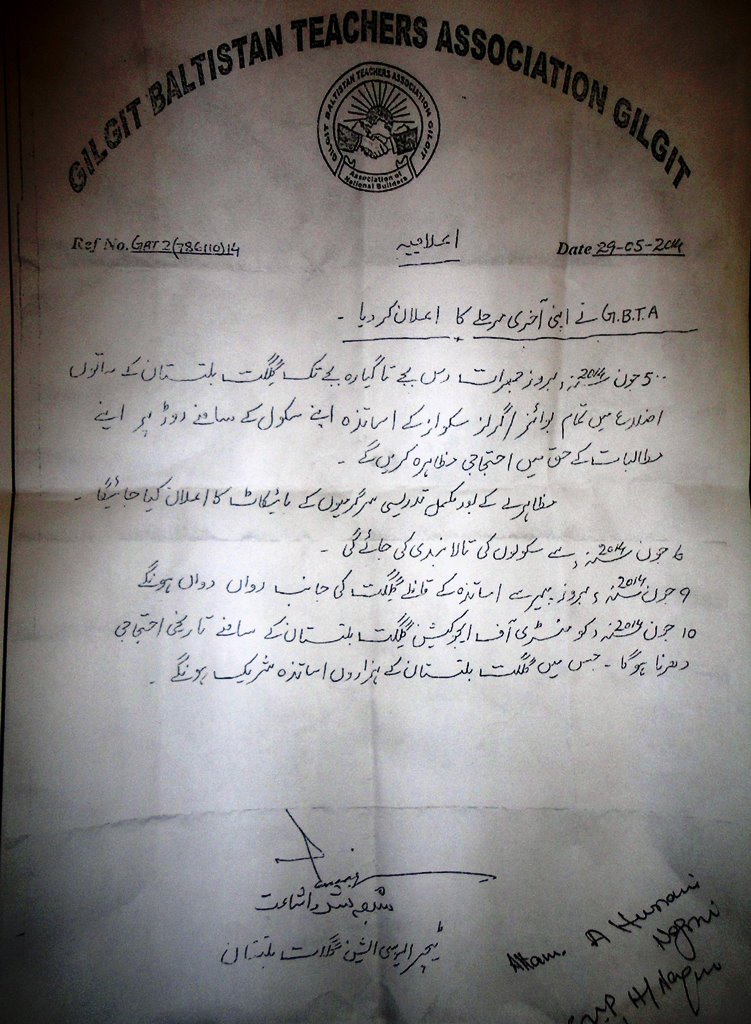 GILGIT BALTISTAN TEACHERS ASSOCIATION GILGIT
GILGIT BALTISTAN TEACHERS ASSOCIATION GILGIT
Association of
National Builders
Ref No. GAT 2(786110)14
اعلامیہ
Date 29-05-2014
G.B.T.A نے اپنی آخری مرحلے کا اعلان کر دیا ۔
5 جون 2014ء بروز جمعرات دس بجے تا گیارہ بجے تک گلگت بلتستان کے ساتوں
اضلاع میں تمام بوائز / گرلز سکولز کے اساتذہ اپنے سکول کے سامنے روڈ پر اپنے
مطالبات کے حق میں احتجاجی مظاہرہ کریں گے ۔
مظاہرے کے بعد مکمل تدریسی سرگرمیوں کے بائیکاٹ کا اعلان کیا جائیگا ۔
6 جون 2014ء سے سکولوں کی تالا بندی کی جائے گی ۔
9 جون 2014ء بروز پیر سے اساتذہ کے قافلے گلگت کی جانب رواں دواں ہونگے
10 جون 2014ء کو منسٹری آف ایجوکیشن گلگت بلتستان کے سامنے تاریخی احتجاجی
دھرنا ہوگا ۔ جس میں گلگت بلتستان کے ہزاروں اساتذہ شریک ہونگے ۔
شعبہ نشر و اشاعت
ٹیچر ایسوسی ایشن گلگت بلتستان
A Hussaini
Nagar